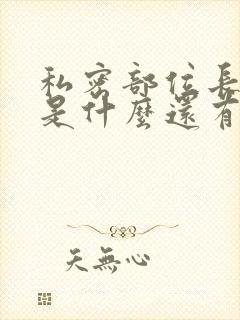 私密部位長
是什麼還有
天無心